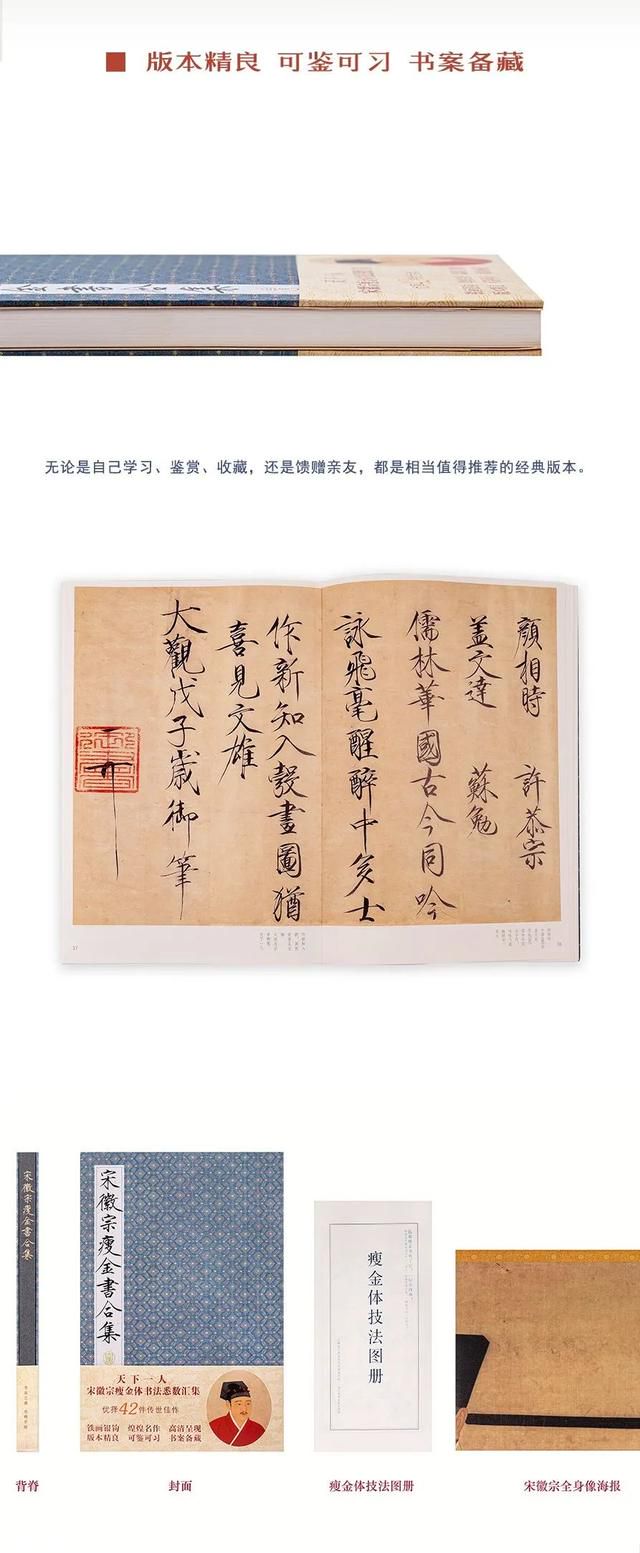 ■ 版本精良 可鉴可习 书案备藏
无论是自己学习、鉴赏、收藏，还是馈赠亲友，都是相当值得推荐的经典版本。
顔相時 許恭宗
盖文達 蘇勉
儒林華國古今同吟
詠飛毫醒醉中多士
作新知入彀畫圖猶
喜見文雄
大觀戊子歲御筆
宋徽宗瘦金書合集
宋徽宗瘦金書合集
天下一人
宋徽宗瘦金体书法悉数汇集
优择42件传世佳作
铁画银钩 煌煌名作 高清呈现
版本精良 可鉴可习 书案备藏
瘦金体技法图册
背脊
封面
瘦金体技法图册
宋徽宗全身像海报